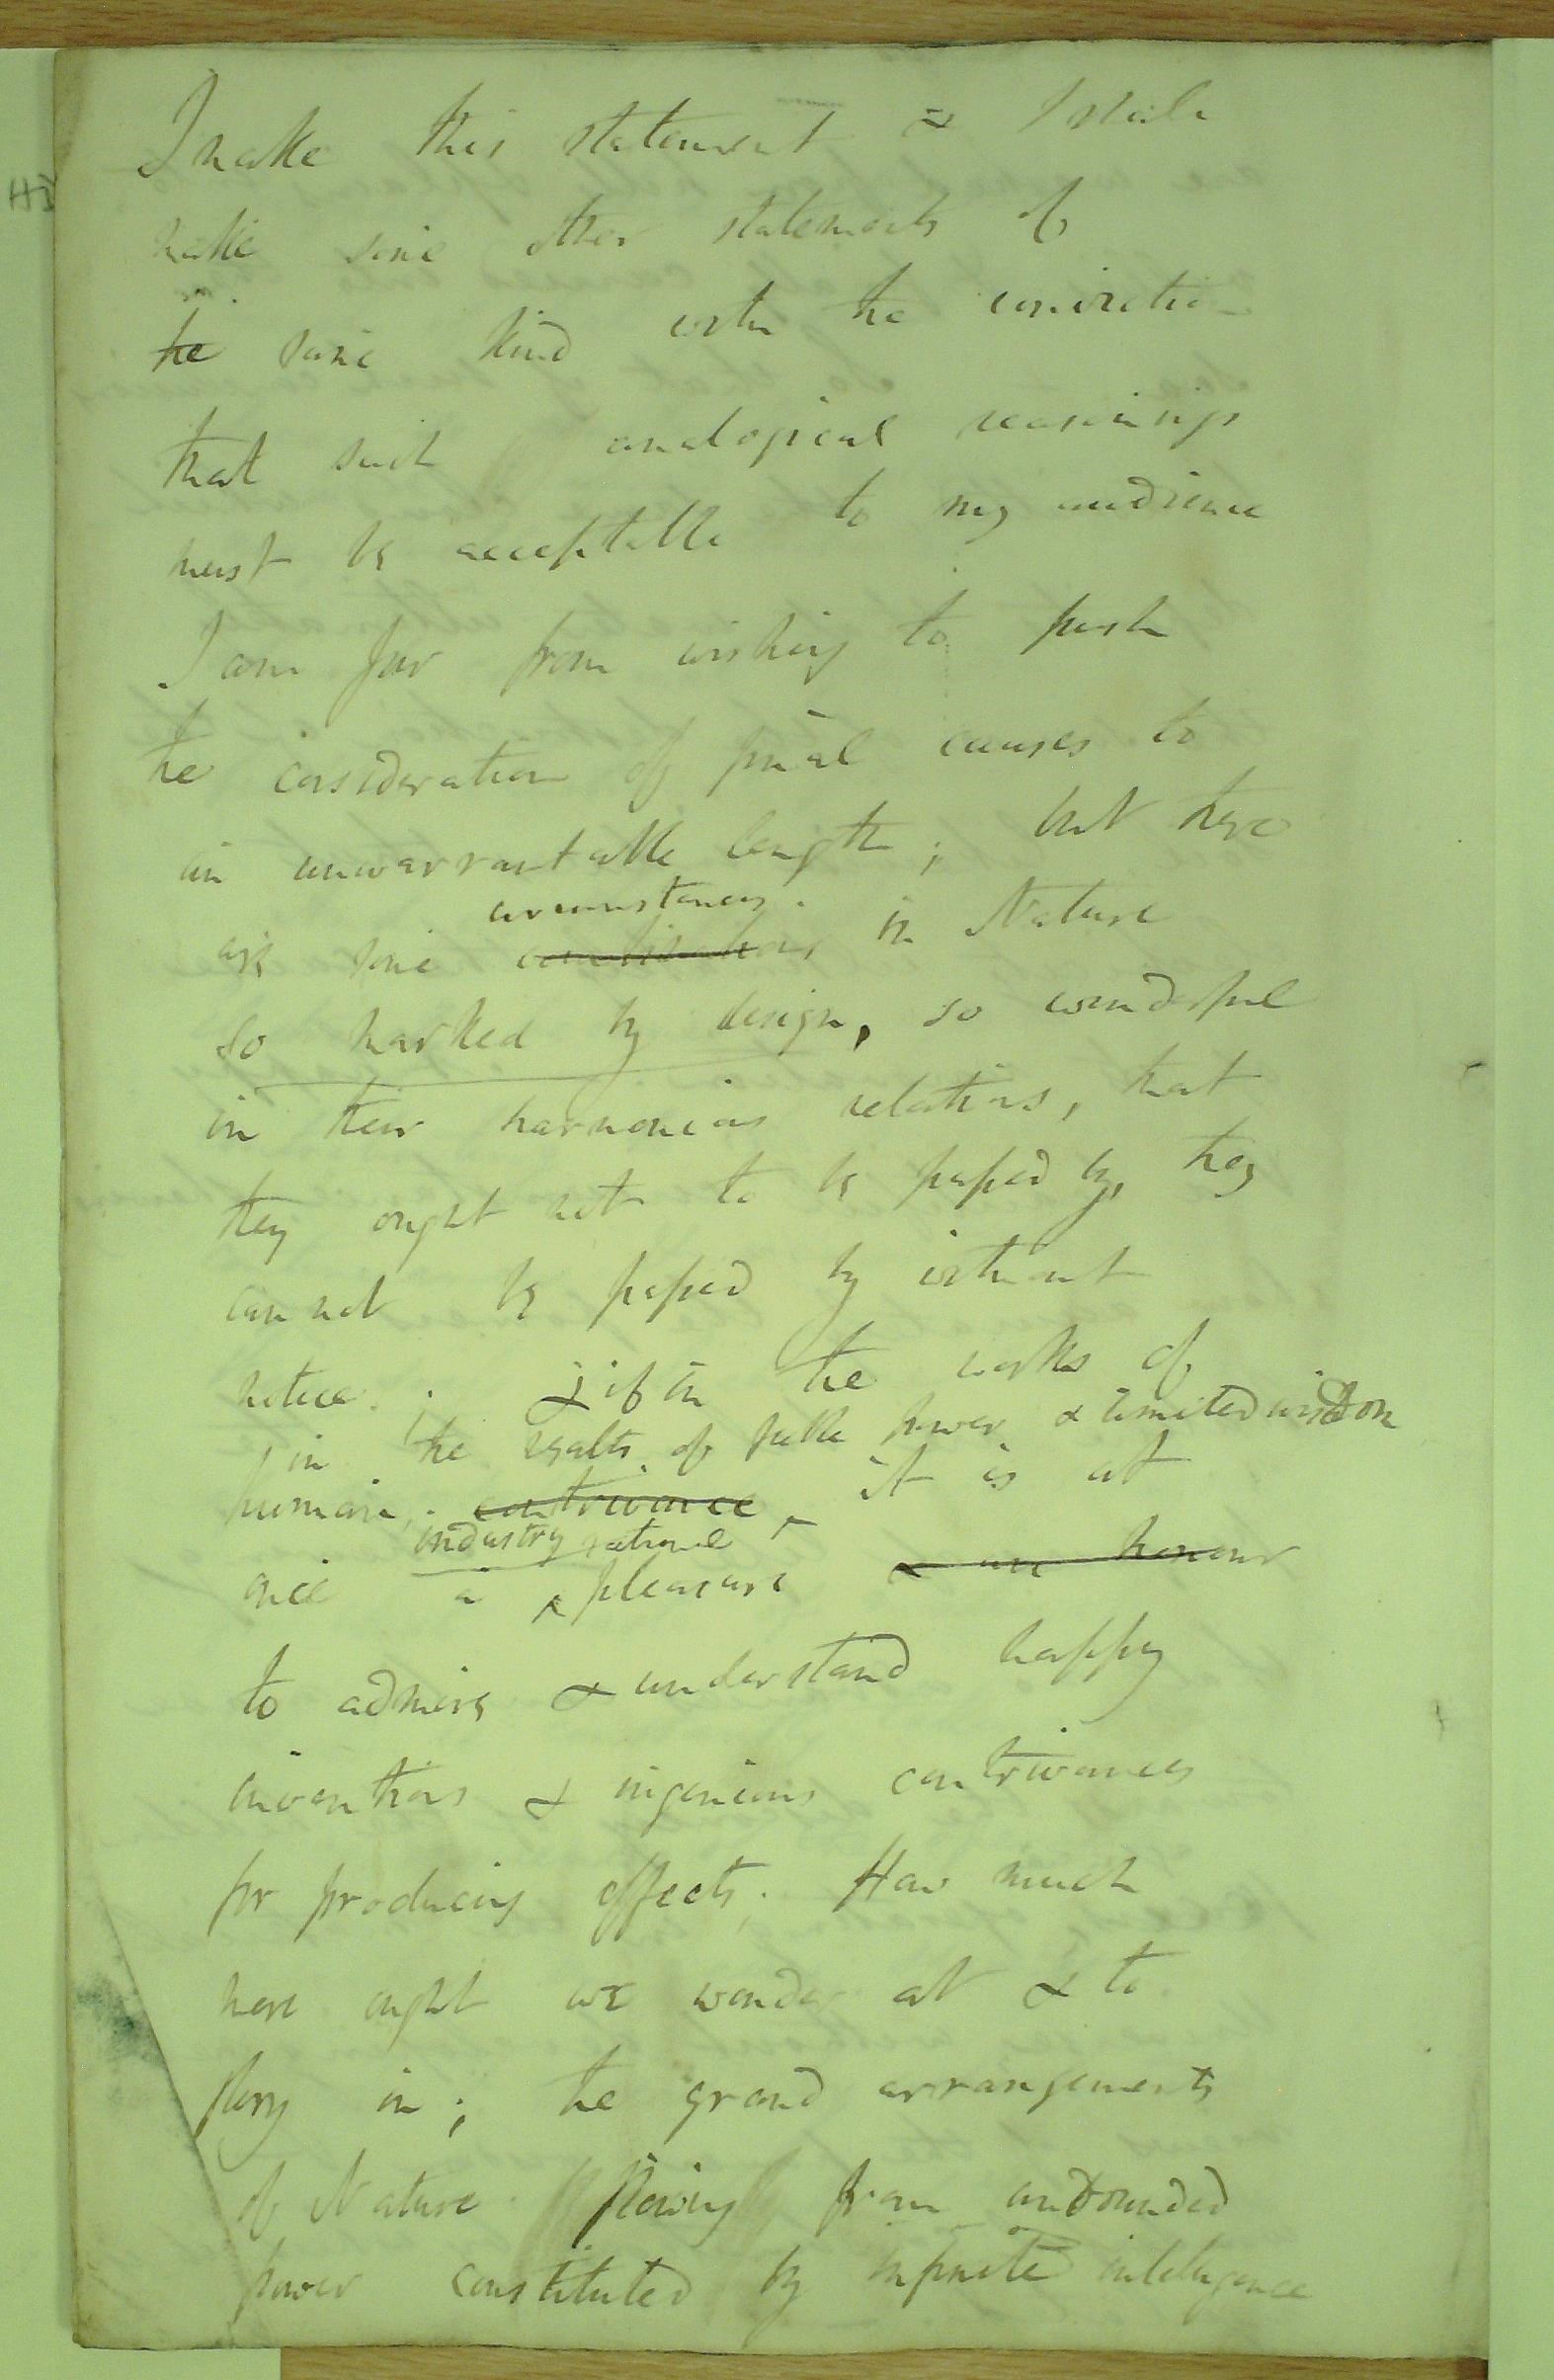 I make this statement & I shall
make some other statements of
the same kind with the conviction
that such analogical reasonings
must be acceptable to my audience
I am far from wishing to push
the consideration of final causes to
an unwarrantable length; but there
circumstances.
are some in Nature
so marked by design, so wonderful
in their harmonious relations, that
they ought not to be passed by, they
cannot be passed by without
notice. & if in the works of
in the results of feeble power & limited wisdom
human contrivance, it is at
industry rational
once a pleasure & an honour
to admire & understand happy
inventions & ingenious contrivances
for producing effects; How much
more ought we wonder at & to
glory in; the grand arrangements
of Nature flowing from unbounded
power constituted by infinite intelligence